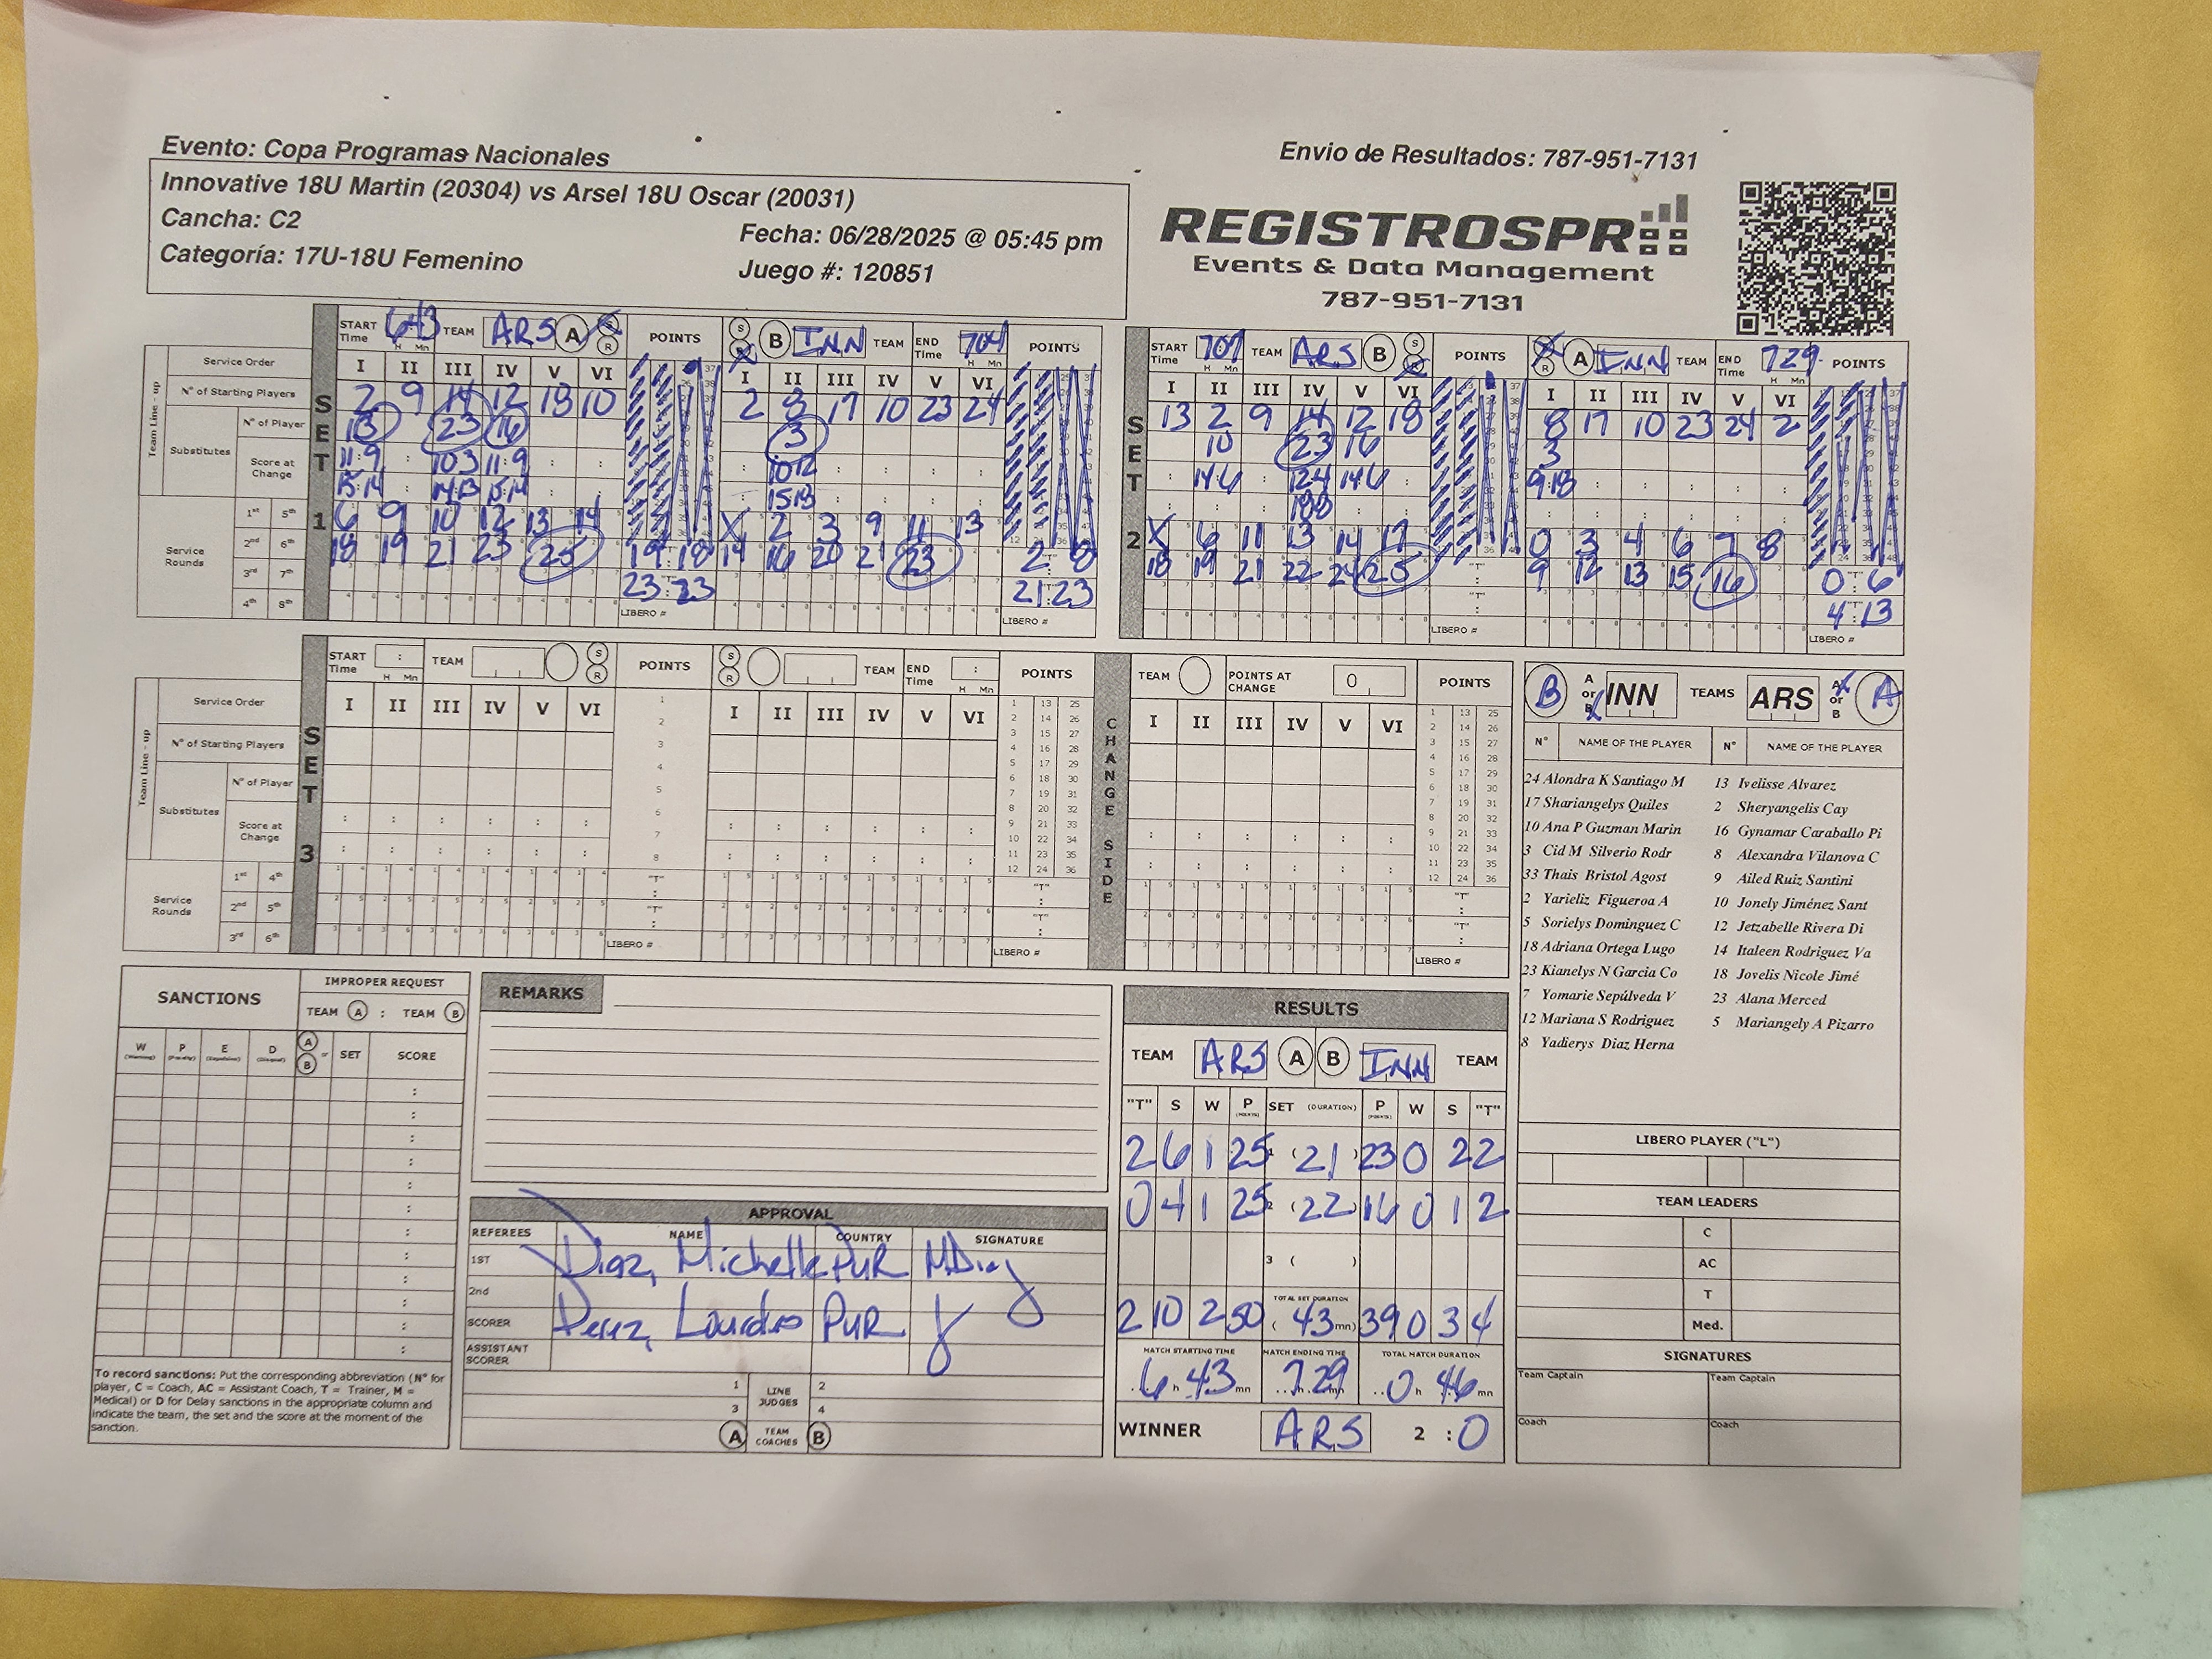 Evento: Copa Programas Nacionales
Envio de Resultados: 787-951-7131
Innovative 18U Martin (20304) vs Arsel 18U Oscar (20031)
Cancha: C2
Fecha: 06/28/2025 @ 05:45 pm
Categoría: 17U-18U Femenino
Juego #: 120851
REGISTROSPR
Events & Data Management
787-951-7131
START Time 643 TEAM ARS A S R POINTS S R B INN TEAM END Time 704 POINTS
START Time 707 TEAM ARS B S R POINTS S R A INN TEAM END Time 729 POINTS
Team Line - up
Service Order
I II III IV V VI I II III IV V VI I II III IV V VI I II III IV V VI
N° of Starting Players
2 9 14 12 18 10 2 8 17 10 23 24 13 2 9 14 12 18 8 17 10 23 24 2
Substitutes
N° of Player
13 23 16 3 10 23 16 3
Score at Change
11:9 10:3 11:9 10:12 14:6 12:4 14:6 9:18
15:14 14:13 15:14 15:18 18:8
SET 1
SET 2
Service Rounds
1st 5th
6 9 10 12 13 14 X 2 3 9 11 13 X 6 11 13 14 17 0 3 4 6 7 8
2nd 6th
18 19 21 23 25 19:18 14 16 20 21 23 2:8 18 19 21 22 24 25 9 12 13 15 16 0:6
3rd 7th
23:23 21:23 4:13
4th 8th
LIBERO # LIBERO # LIBERO # LIBERO #
START Time : H Mn TEAM S R POINTS S R TEAM END Time : H Mn POINTS
TEAM POINTS AT CHANGE 0 POINTS
B A or B INN TEAMS ARS A or B A
Service Order
I II III IV V VI I II III IV V VI I II III IV V VI
N° NAME OF THE PLAYER N° NAME OF THE PLAYER
N° of Starting Players
Team Line - up
Substitutes
N° of Player
Score at Change
SET 3
CHANGE SIDE
Service Rounds
1st 4th
2nd 5th
3rd 6th
LIBERO # LIBERO # LIBERO #
24 Alondra K Santiago M 13 Ivelisse Alvarez
17 Shariangelys Quiles 2 Sheryangelis Cay
10 Ana P Guzman Marin 16 Gynamar Caraballo Pi
3 Cid M Silverio Rodr 8 Alexandra Vilanova C
33 Thais Bristol Agost 9 Ailed Ruiz Santini
2 Yarieliz Figueroa A 10 Jonely Jiménez Sant
5 Sorielys Dominguez C 12 Jetzabelle Rivera Di
18 Adriana Ortega Lugo 14 Italeen Rodriguez Va
23 Kianelys N Garcia Co 18 Jovelis Nicole Jimé
7 Yomarie Sepúlveda V 23 Alana Merced
12 Mariana S Rodriguez 5 Mariangely A Pizarro
8 Yadierys Diaz Herna
SANCTIONS
IMPROPER REQUEST
TEAM A : TEAM B
W P E D A or B SET SCORE
To record sanctions: Put the corresponding abbreviation (N° for
player, C = Coach, AC = Assistant Coach, T = Trainer, M =
Medical) or D for Delay sanctions in the appropriate column and
indicate the team, the set and the score at the moment of the
sanction.
REMARKS
APPROVAL
REFEREES NAME COUNTRY SIGNATURE
1ST Diaz, Michelle PUR MDiaz
2nd
SCORER Perez, Lourdes PUR
ASSISTANT SCORER
1 LINE JUDGES 2
3 4
A TEAM COACHES B
RESULTS
TEAM ARS A B INN TEAM
"T" S W P (POINTS) SET (DURATION) P (POINTS) W S "T"
2 6 1 25 1 (21) 23 0 2 2
0 4 1 25 2 (22) 16 0 1 2
3 ( )
TOTAL SET DURATION
2 10 2 50 (43 mn) 39 0 3 4
MATCH STARTING TIME MATCH ENDING TIME TOTAL MATCH DURATION
6 h 43 mn 7 h 29 mn 0 h 46 mn
WINNER ARS 2 : 0
LIBERO PLAYER ("L")
TEAM LEADERS
C
AC
T
Med.
SIGNATURES
Team Captain Team Captain
Coach Coach